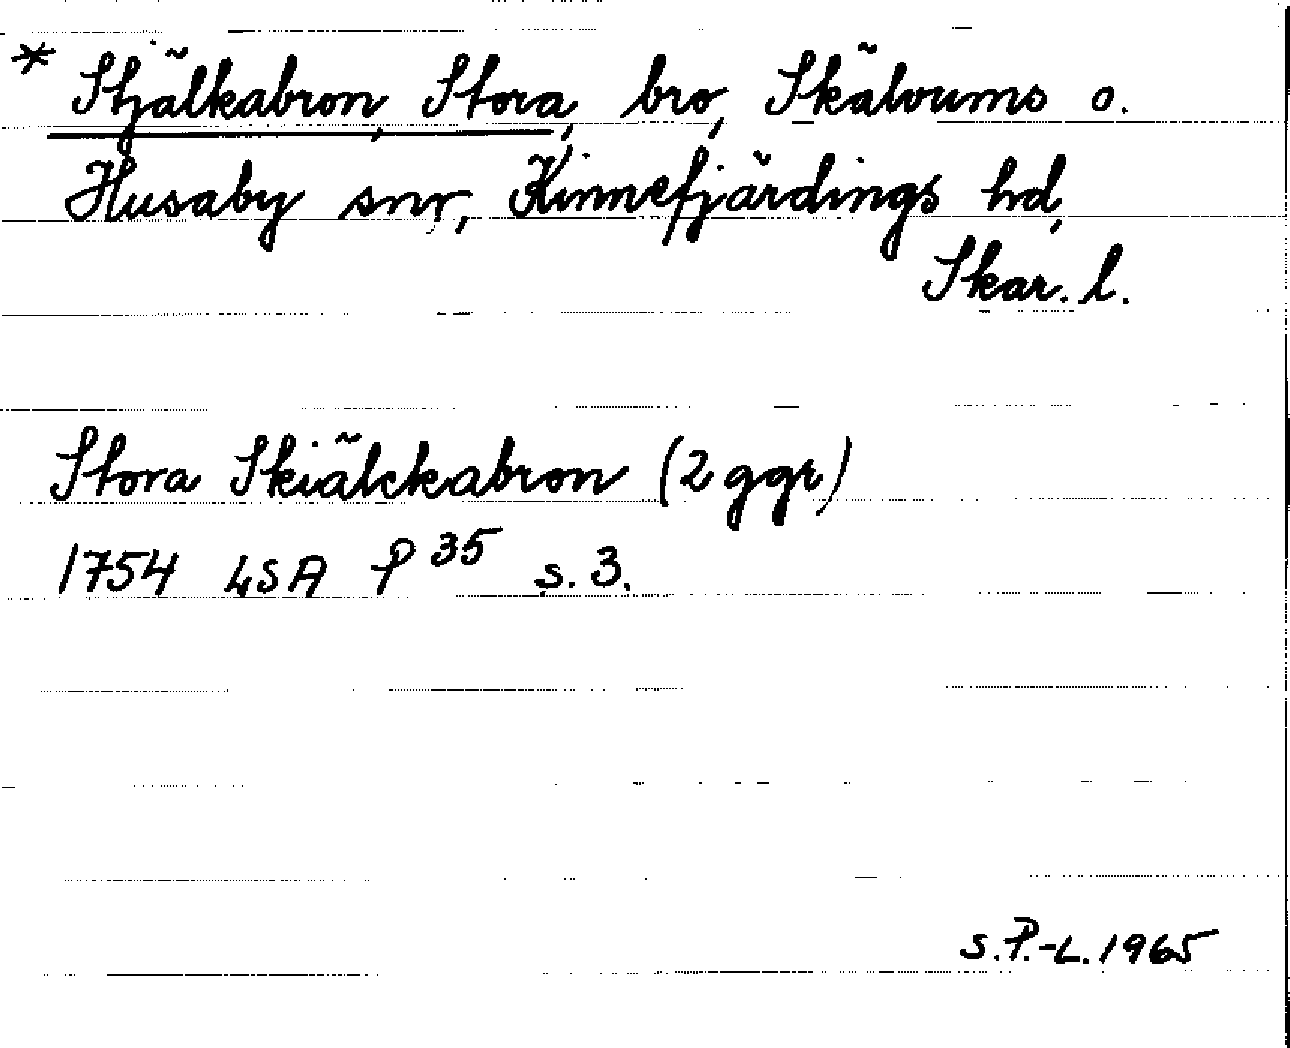 * Stjälkabron, Stora, bro, Skälvums o.
Husaby snr, Kinnefjärdings hd,
Skar. l.
Stora Skiälckabron (2 ggr)
1754 LSA P 35 s. 3.
S.P.-L. 1965